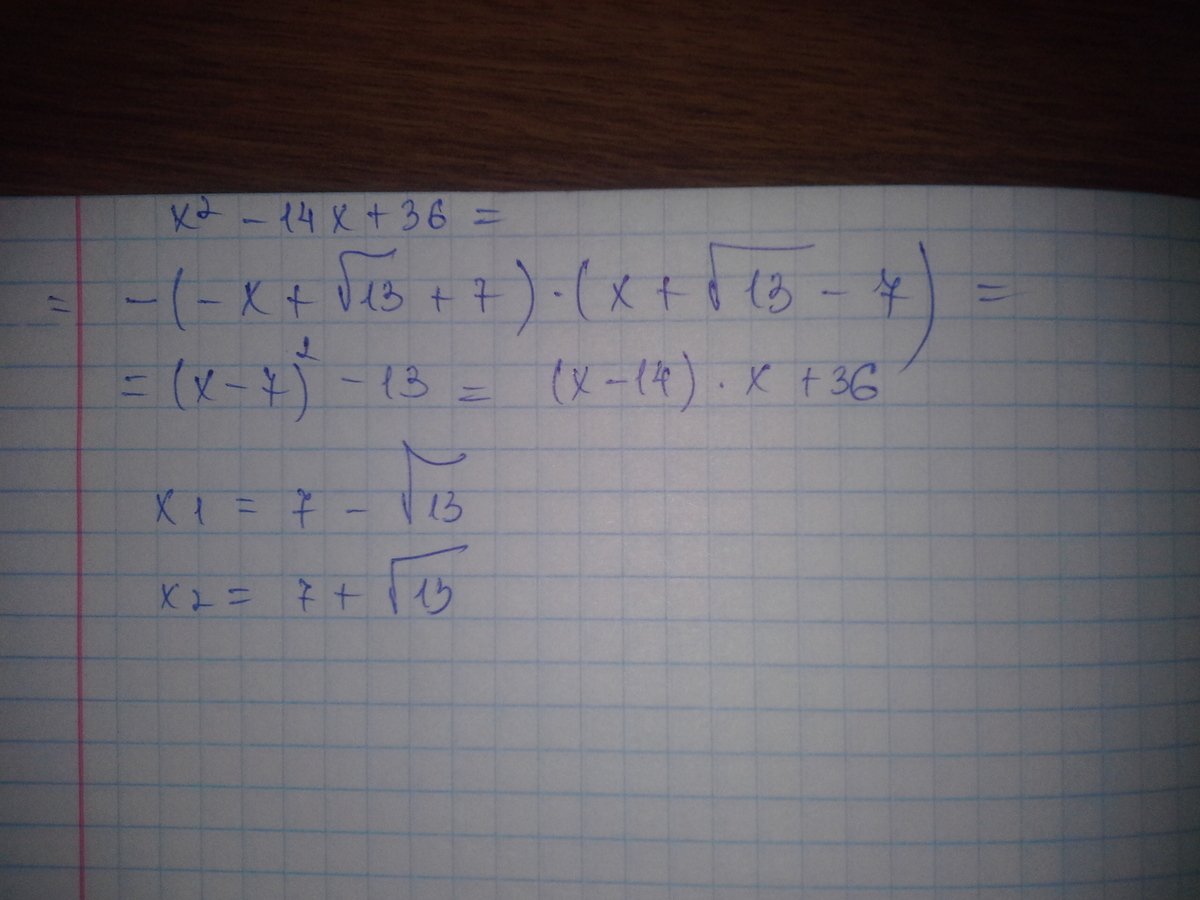 x² - 14x + 36 =
= -(-x + √13 + 7) · (x + √13 - 7) =
= (x - 7)² - 13 = (x - 14) · x + 36
x1 = 7 - √13
x2 = 7 + √13